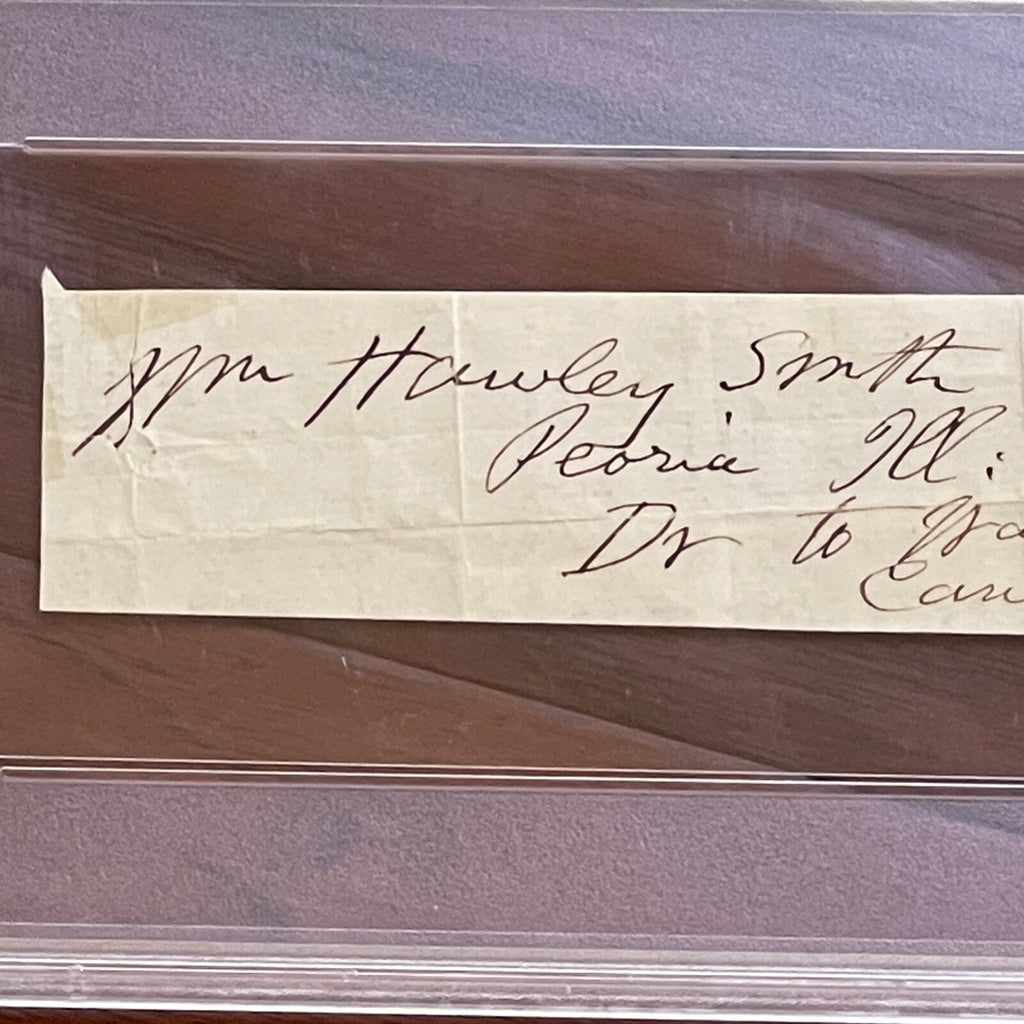 Wm Hawley Smith
Peoria Ill:
Dr to